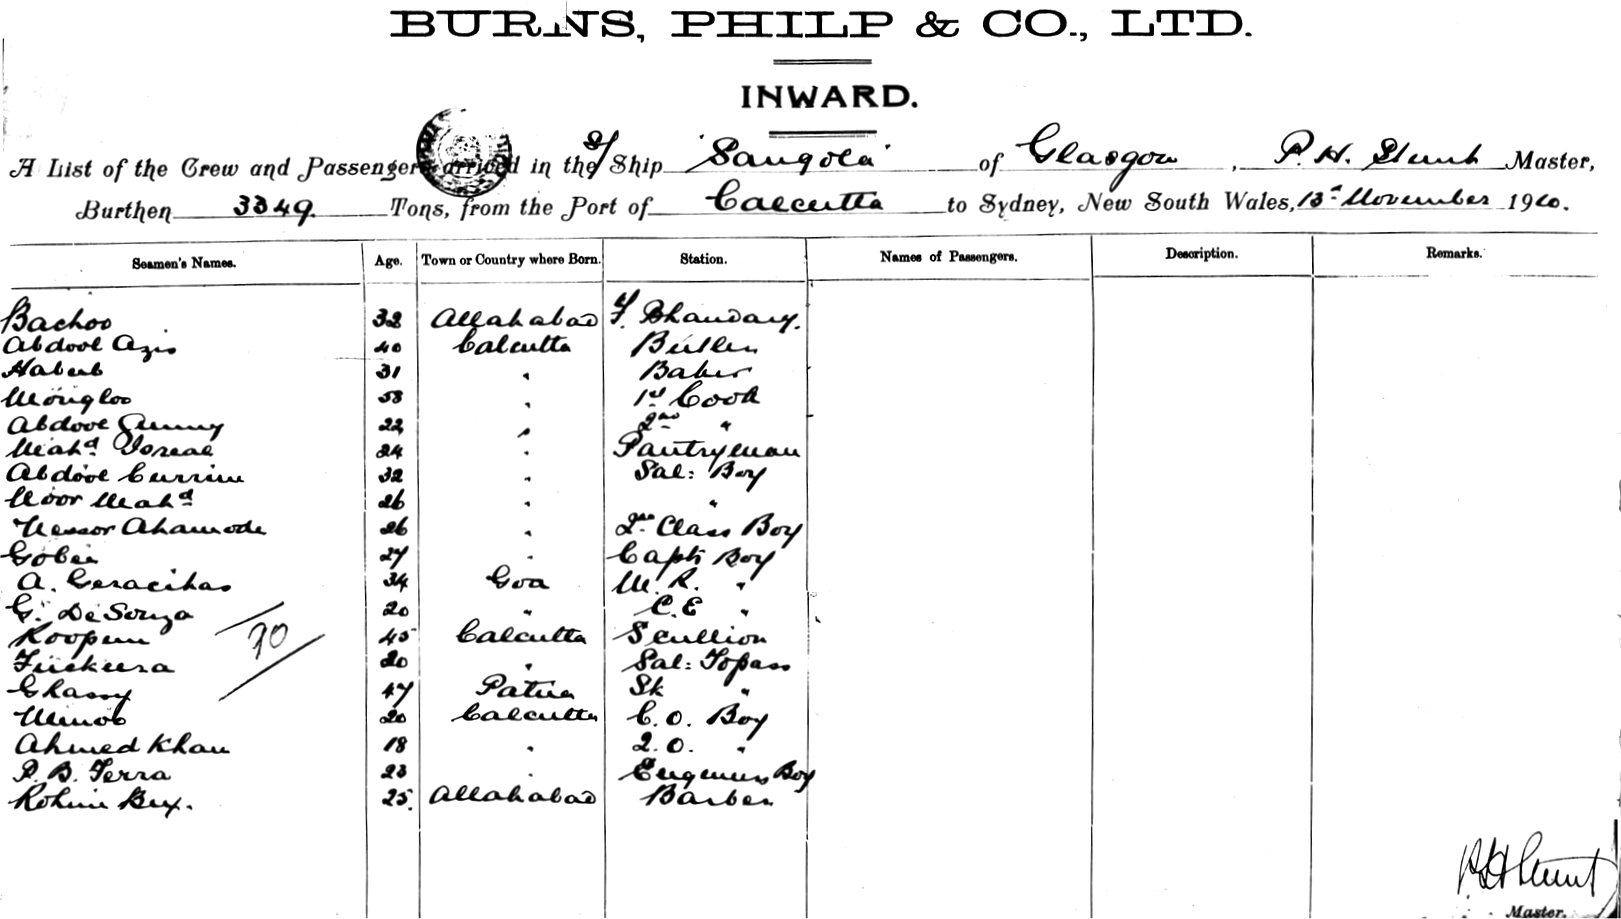 BURNS, PHILP & CO., LTD.
INWARD.
A List of the Crew and Passengers arrived in the S/ Ship "Sangola" of Glasgow, P. H. Master,
Burthen 3349. Tons, from the Port of Calcutta to Sydney, New South Wales, 13th November 1910.
Seamen's Names. Age. Town or Country where Born. Station. Names of Passengers. Description. Remarks.
Bachoo 32 Allahabad Bhandary.
Abdool Azis 40 Calcutta Butler
Habib 31 " Baker
Mongloo 53 " 1st Cook
Abdool Gunny 22 " 2nd "
Mahd 24 " Pantryman
Abdool Currim 32 " Sal: Boy
Noor Mahd 26 " "
Nessor Ahamode 26 " 2nd Class Boy
27 " Capts Boy
A. 34 Goa M. R. "
G. De Souza 20 " C. E "
Koopen 45 Calcutta Scullion
20 " Sal: Topass
70
Ghassy 47 Patna Sk "
20 Calcutta C. O. Boy
Ahmed Khan 18 " 2. O. "
P. B. Terra 23 " Engineers Boy
Rohim Bux. 25. Allahabad Barber
Master.